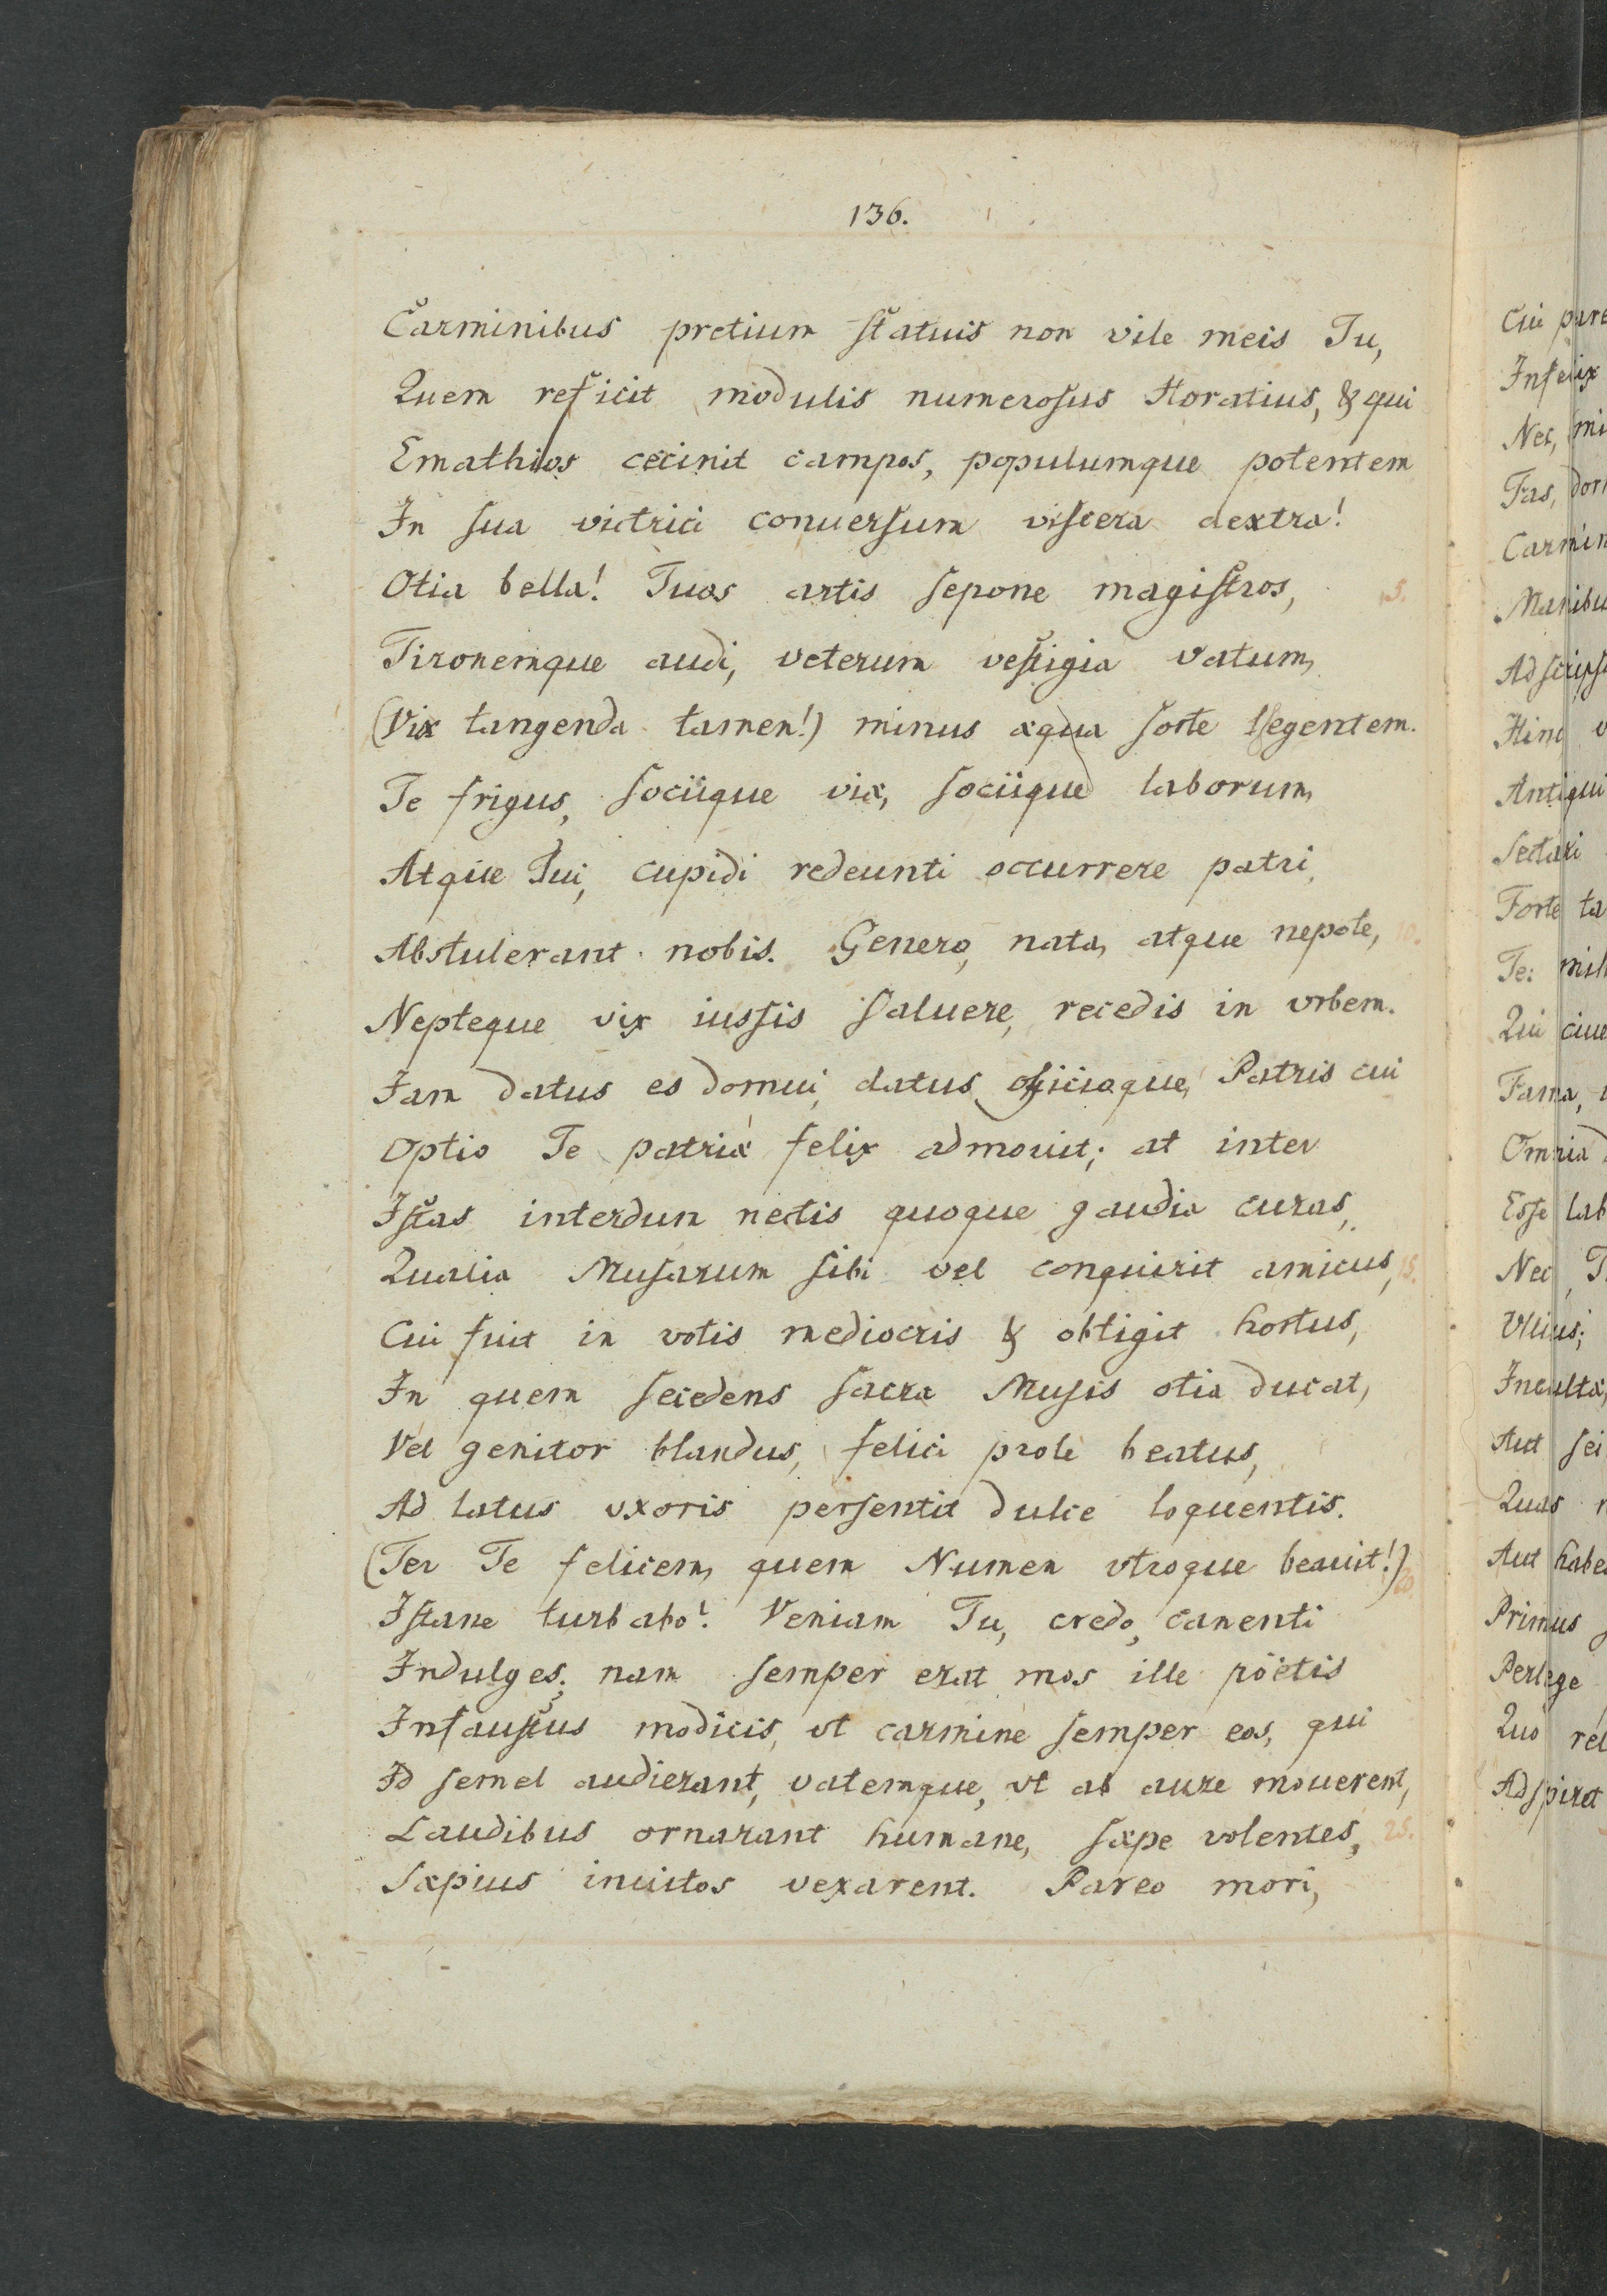 136.
Carminibus pretium statuis non vile meis Tu,
Quem reficit modulis numerosus Horatius, & qui
Emathios cecinit campos, populumque potentem
In sua victrici conuersum viscera dextra!
Otia bella! Tuos artis sepone magistros, 5.
Tironemque audi, veterum vestigia vatum,
(Vix tangenda tamen!) minus æqua sorte legentem.
Te frigus, sociique viæ, sociique laborum,
Atque Tui, cupidi redeunti occurrere patri,
Abstulerant nobis. Genero, nata, atque nepote, 10.
Nepteque vix iussis saluere, recedis in vrbem.
Jam datus es domui, datus officiisque, Patris cui
Optio Te patriæ felix admouit; at inter
Istas interdun nectis quoque gaudia curas,
Qualia Musarum sibi vel conquirit amicus, 15.
Cui fuit in votis mediocris & obtigit hortus,
In quem secedens sacra Musis otia ducat,
Vel genitor blandus, felici prole beatus,
Ad latus vxoris persentit dulce loquentis.
(Ter Te felicem, quem Numen vtroque beauit!) 20
Istane turbabo? Veniam Tu, credo, canenti
Indulges; nam semper erat mos ille poëtis
Infaustus modicis, vt carmine semper eos, qui
Id semel audierant, vatemque, vt ab aure mouerent,
Laudibus ornarant humane, sæpe volentes, 25.
Sæpius inuitos vexarent. Pareo mori,
Cui
Infelix
Nec,
Fas,
Antiqui
Sectari
Forte
Te:
Qui
Fama,
Omnia
Esse
Nec
Vllius;
Inculta,
Aut
Quas
Aut
Primus
Perlege
Quo
Adspiret